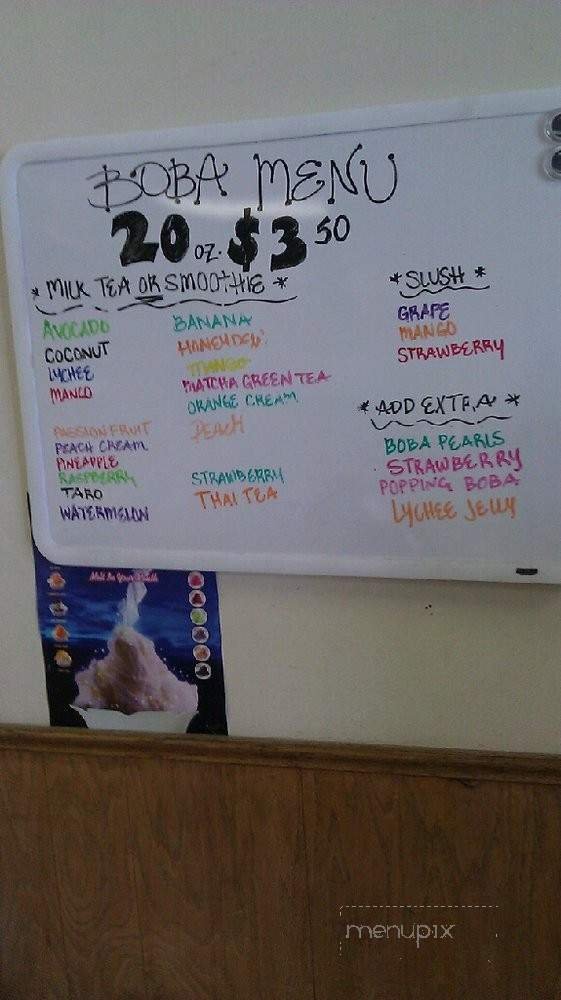 BOBA MENU
20 oz. $3 50
* MILK TEA OR SMOOTHIE *
AVOCADO
COCONUT
LYCHEE
MANGO
PASSION FRUIT
PEACH CREAM
PINEAPPLE
RASPBERRY
TARO
WATERMELON
BANANA
HONEYDEW
MANGO
MATCHA GREEN TEA
ORANGE CREAM
PEACH
STRAWBERRY
THAI TEA
* SLUSH *
GRAPE
MANGO
STRAWBERRY
* ADD EXTRA *
BOBA PEARLS
STRAWBERRY
POPPING BOBA
LYCHEE JELLY
Melt In Your Mouth
menupix